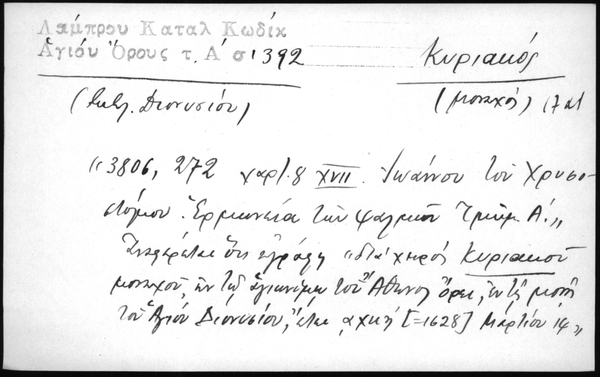 Λάμπρου Καταλ Κωδίκ
Ἁγίου Ὄρους τ. Α΄ σ. 392
Κυριακός
(Βιβλ. Διονυσίου)
(μοναχός) 17 αι
"3806, 272 χαρτ. 8 XVII. Ἰωάννου τοῦ Χρυσο-
στόμου Ἑρμηνεία τῶν ψαλμῶν Τμῆμ. Α΄."
Ἀναφέρεται ὅτι ἐγράφη "διὰ χειρὸς Κυριακοῦ
μοναχοῦ, ἐν τῷ ἁγιωνύμῳ τοῦ Ἄθωνος ὄρει, ἐν τῇ μονῇ
τοῦ Ἁγίου Διονυσίου, ἔτει αχκη [=1628] Μαρτίου 14"